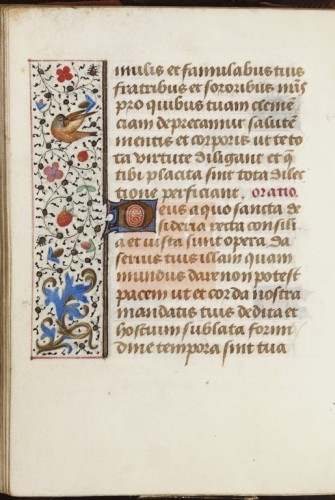 mulis et famulabus tuis
fratribus et sororibus nr̃is
pro quibus tuam clemẽ
ciam deprecamur salutẽ
mentis et corporis ut te to
ta virtute diligant et q̃
tibi placita sint tota dilec
tione perficiant. oratio.
Deus a quo sancta de
sideria recta consili
a et iusta sunt opera da
servis tuis illam quam
mundus dare non potest
pacem ut et corda nostra
mandatis tuis dedita et
hostium sublata formi
dine tempora sint tua